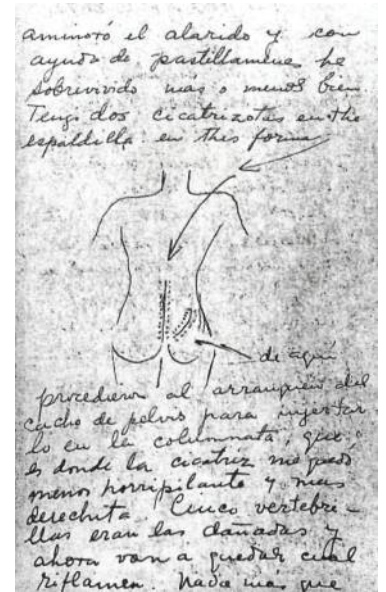 aminoró el alarido y con
ayuda de pastillamenes he
sobrevivido mas o menos bien.
Tengo dos cicatrizotas en the
espaldilla en this forma
de aquí
procedieron al arranquen del
cacho de pelvis para injertar
lo en la columnata, que
es donde la cicatriz me quedó
menos horripilante y mas
derechita. Cinco vertebre-
llas eran las dañadas y
ahora van a quedar cual
riflamen. Nada más que